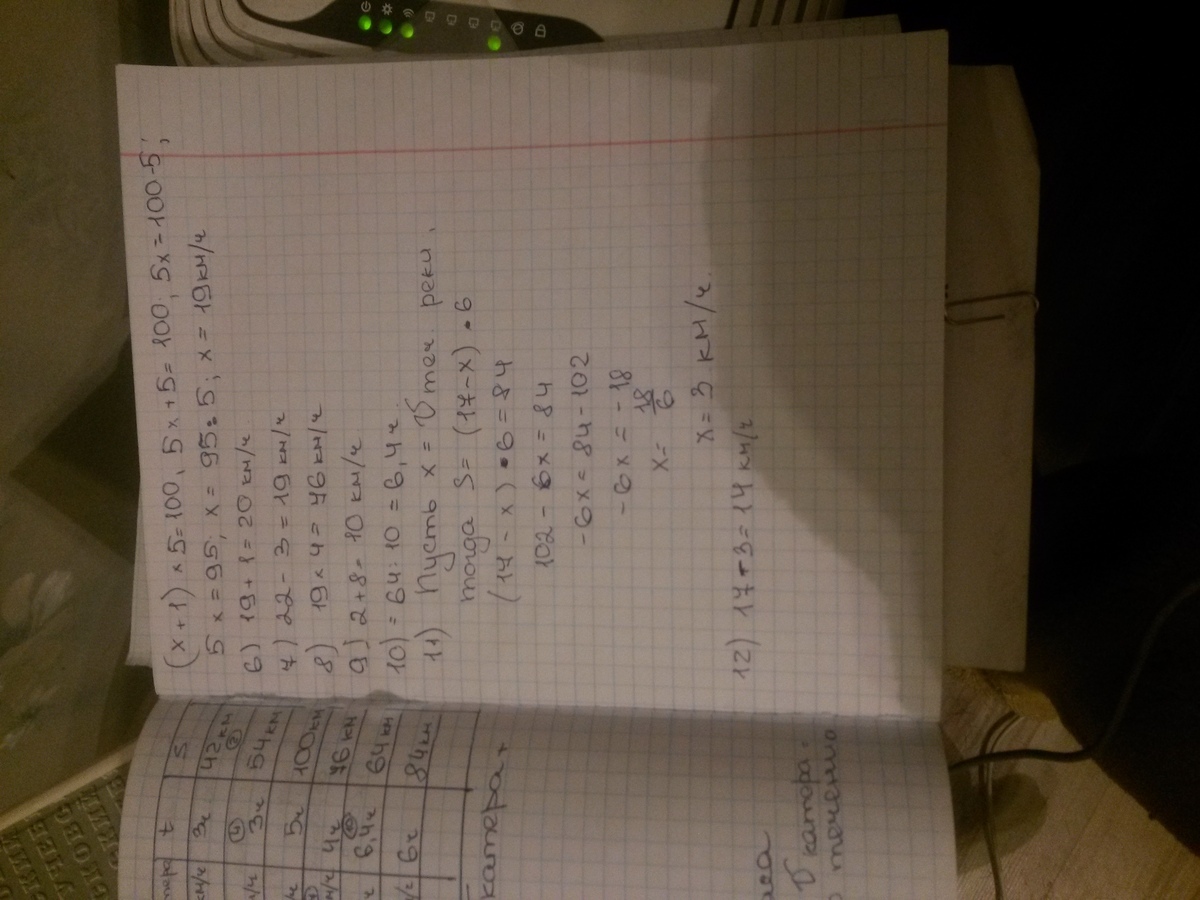 (x+1) × 5 = 100, 5x+5 = 100, 5x = 100-5;
5x = 95; x = 95:5; x = 19 км/ч
6) 19 + 1 = 20 км/ч
7) 22 - 3 = 19 км/ч
8) 19 × 4 = 76 км/ч
9) 2+8 = 10 км/ч
10) = 64 : 10 = 6,4 ч
11) Пусть x = V теч. реки,
тогда S = (17-x) • 6
(17 - x) • 6 = 84
102 - 6x = 84
-6x = 84 - 102
-6x = -18
x = 18/6
x = 3 км/ч.
12) 17-3 = 14 км/ч
t S
км/ч 3ч 42км
ч/ч 3ч 54км
/ч 5ч 100км
м/ч 4ч 76км
ч 6,4ч 64км
/ч 6ч 84км
катера +
V катора =
течению